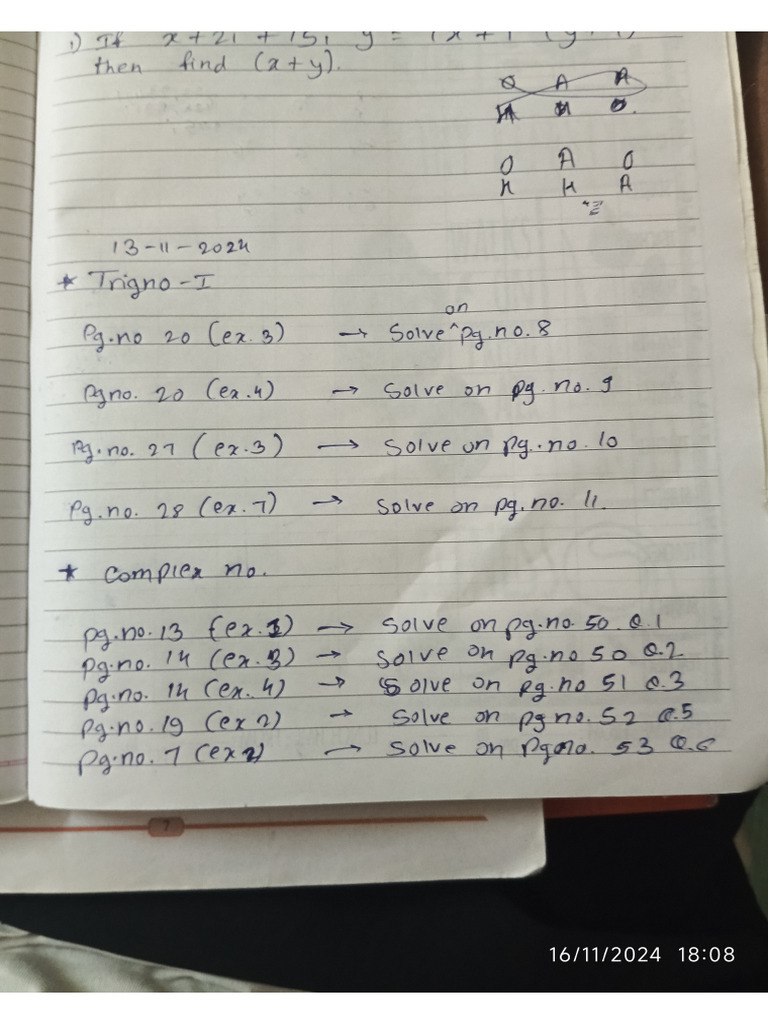 then find (x+y).
O A A
O A O
H H A
13-11-2024
* Trigno-I
Pg.no 20 (ex.3) → Solve ^on pg.no.8
Pgno. 20 (ex.4) → Solve on pg. no. 9
Pg.no. 27 (ex.3) → Solve on pg..no. 10
Pg.no. 28 (ex.7) → Solve on pg.no. 11.
* Complex no.
pg.no.13 (ex.1) → Solve on pg.no. 50 Q.1
pg.no. 14 (ex.3) → Solve on pg.no 50 Q.2
pg.no. 14 (ex.4) → Solve on pg.no 51 Q.3
pg.no. 19 (ex2) → Solve on pg no. 52 Q.5
pg.no. 7 (ex2) → Solve on Pg no. 53 Q.6
7
16/11/2024 18:08